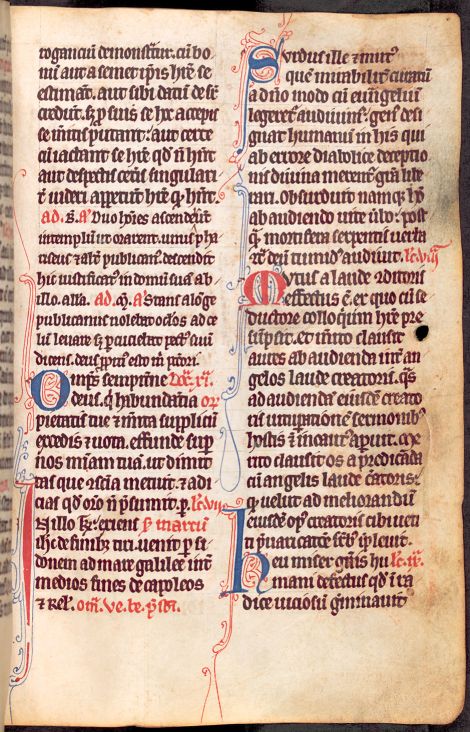 rogantiū demonstrāt̄. cū bo
nū aut a semet ip̄is hr̄e se
estimāt. aut sibi datū de sr̄
credūt. s; p̲ suis se hec accepis
se m̄itis putant. aut certe
cū iactant se hr̄e qd̓ n̄ hn̄t
aut despectis cet̓is singularit̓
videri appetūt hr̄e q̄ hn̄t.
ad. b̄. A᷑ Duo hoı̄es ascenderūt
in templū ut orarent. unus pha
riseus ⁊ alt̓ publican᷑. descendit
hic iustificat᷑ in domū suā ab
illo. alla. ad. m̄. A᷑ Stans a lōge
publicanus nolebat oclos ad ce
lū levare s; p̲cutiebat pect᷑ suū
dicens. deus ppici᷑ esto m̄ pctori.
Omp̄s sempit̓ne Dn̄c. xi.
deus. q̄ habundātia or
pietatis tue ⁊ m̄ita supplicū
excedis ⁊ uota. effunde sup̲
nos mı̄am tuā. ut dimit
tas que ɔscia metuit. ⁊ adi
cias qd̓ or̄o n̄ p̄sumit. p̲.
In illo t̄r. exiens s̄. marcū
ih̄c de finib᷑ tiri. uenit p̲ si
donem ad mare galilee int̓
medios fines decapoleos
⁊ rel̄. om̄. ve. be. p̄sbi.
Surdus ille ⁊ mut᷑
quē mirabilit̓ curatū
a dn̄o modo cū euāngeliū
legeret᷑ audiuim᷑. gen᷑ desi
gnat humanū in his qui
ab errore diabolice deceptio
nis diuina merent᷑ grā̄ libe
rari. Obsurduit namq; hō
ab audiendo uite u̓bo. post
q̄ mortifera serpentis uerba
ɔt̓ deū tumid᷑ audiuit. lc̄. viij.
Mutus a laude ɔditoris
effectus ē. ex quo cū se
ductore colloquiū hr̄e pre
sūpsit. et m̓ito clausit
aures ab audienda int̓ an
gelos laude creatoris. q̄s
ad audiendā eiusdē creato
ris uituperationē sermonib᷑
hostis ⁊ incaut᷑ apuit. m̓e
rito clausit os a predicāda
cū angelis laude c̓atoris.
q̄ velut ad meliorandū
eiusdē op᷑ creatoris cibi ueti
ti p̄uaricatōe sup̲biuerit.
heu miser gn̄is hu lc̄. ix.
mani defectus qd̓ ita
dice uiciosū ḡminauit